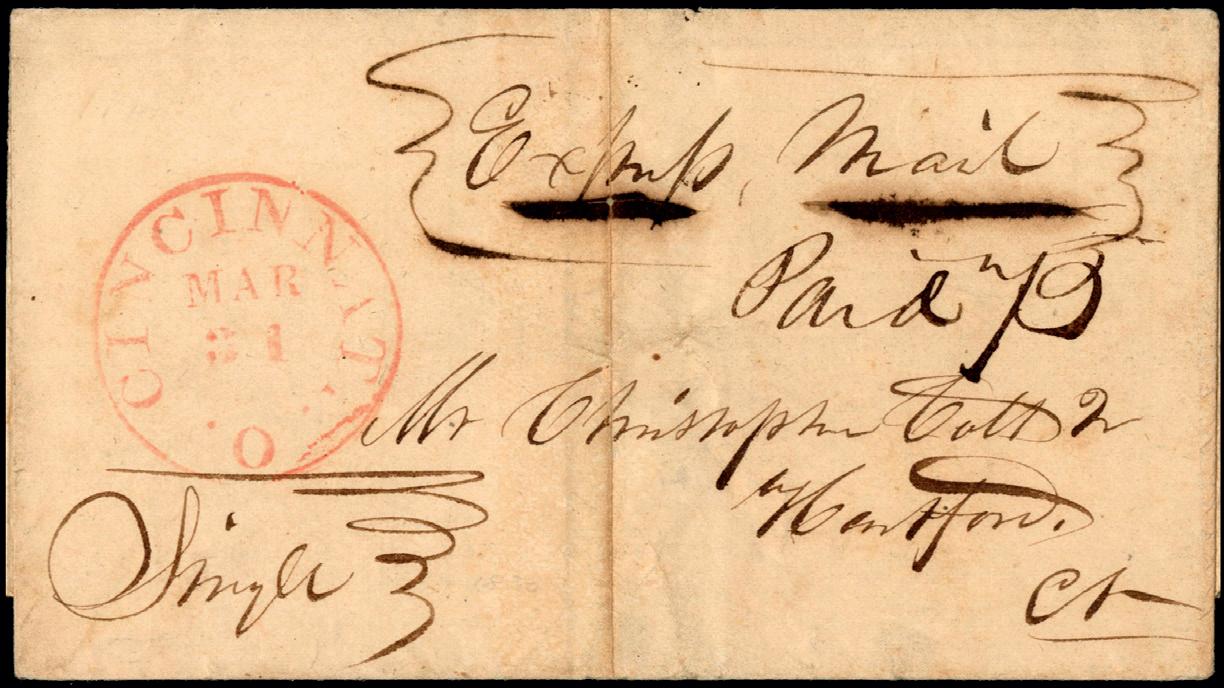 Express Mail
Paid 75
CINCINNATI
MAR
31
O
Mr Christopher Colt Jr
Hartford.
Ct
Single